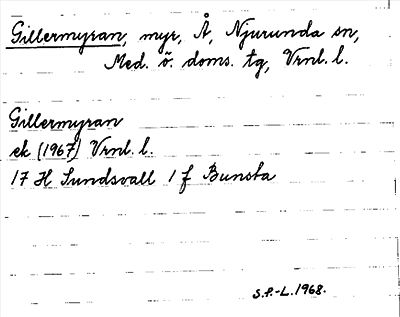 Gillermyran, myr, Å, Njurunda sn,
Med. ö. doms. tg, Vrnl. l.
Gillermyran
ek (1967) Vrnl. l.
17 H Sundsvall 1 f Bunsta
S.P.-L. 1968.